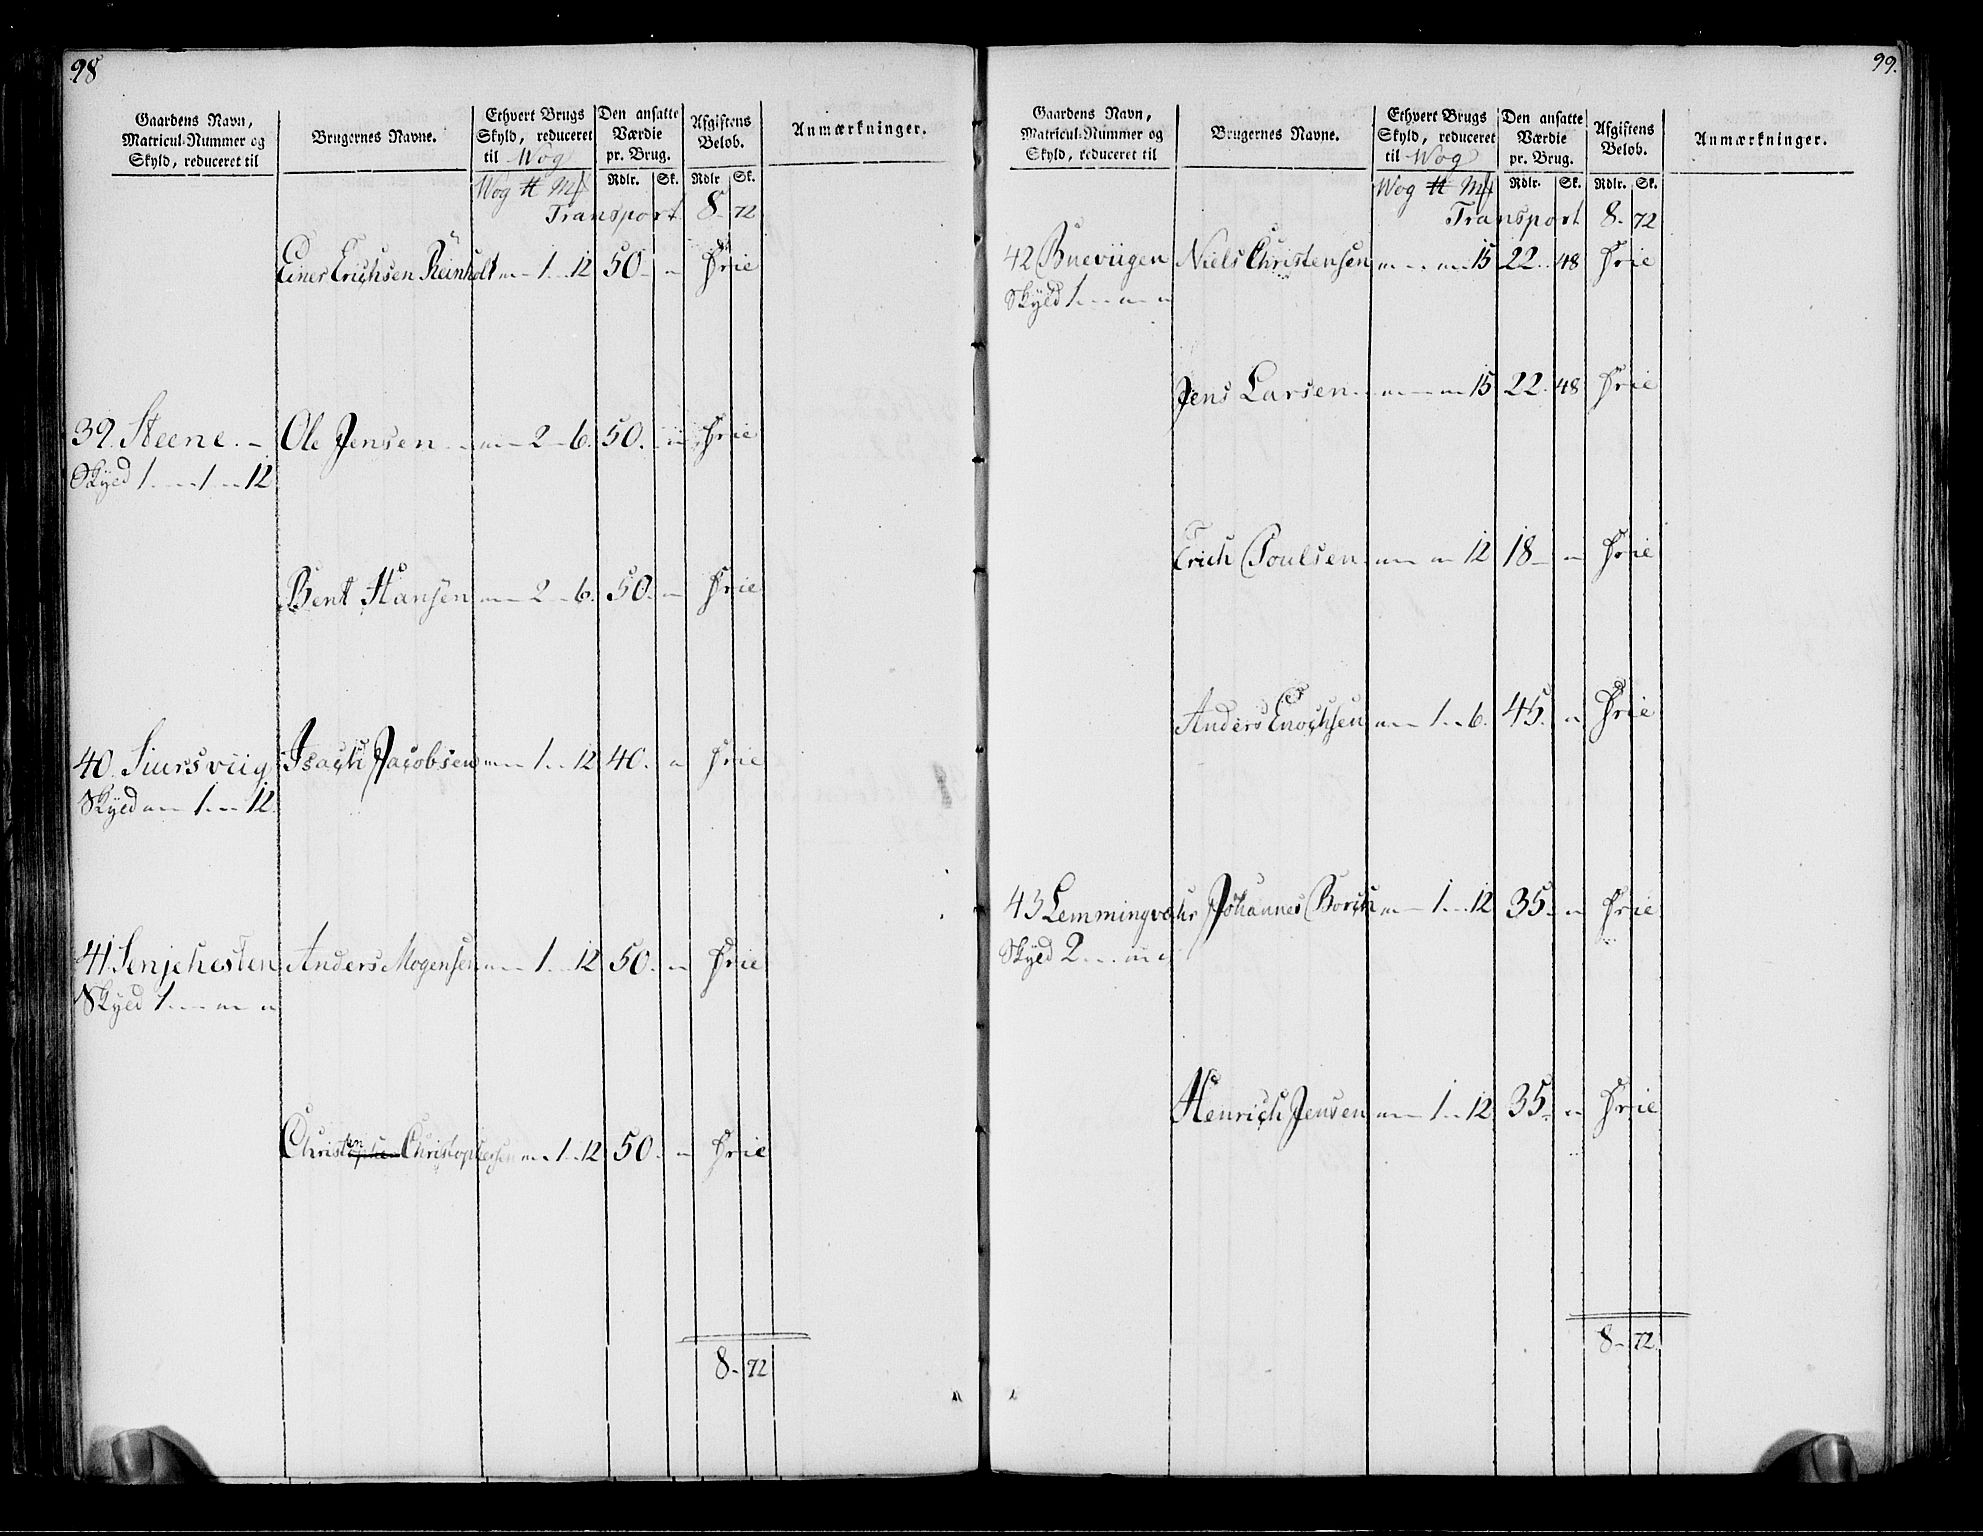 98
Gaardens Navn, Matricul-Nummer og Skyld, reduceret til
Brugernes Navne.
Ethvert Brugs Skyld, reduceret til Wog
Den ansatte Værdie pr. Brug.
Afgiftens Beløb.
Anmærkninger.
Wog ℔ Mk Rdlr. Sk. Rdlr Sk.
Transport 8 - 72
Einer Erichsen Reinholt " - 1 - 12 50 - " Frie
39 Steene. - Ole Jensen - " - 2 - 6. 50. - " Frie
Skyld 1 - - 1 - 12
Bent Hansen " - 2 - 6. 50. - " Frie
40 Siursviig Isach Jacobsen " - 1 - 12 40. - " Frie
Skyld " - 1 - 12.
41 Senjehesten Anders Mogensen " - 1 - 12 50. - " Frie
Skyld 1 - - " - "
Christen Christophersen " - 1 - 12 50. - " Frie
8 - 72
99.
Gaardens Navn, Matricul-Nummer og Skyld, reduceret til
Brugernes Navne.
Ethvert Brugs Skyld, reduceret til Wog
Den ansatte Værdie pr. Brug.
Afgiftens Beløb.
Anmærkninger.
Wog ℔ Mk Rdlr. Sk. Rdlr. Sk.
Transport 8 - 72
42 Bueviigen Niels Christensen " - " - 15 22 - 48 Frie
Skyld 1 - - " - "
Jens Larsen - " - " - 15 22 - 48 Frie
Erich Poulsen " - " - 12 18 - " Frie
Anders Enochsen " - 1 - 6. 45. - " Frie
43 Lemmingvær Johannes Borch " - 1 - 12 35 - " Frie
Skyld 2 - - " - "
Henrich Jensen " - 1 - 12 35 - " Frie
8 - 72.